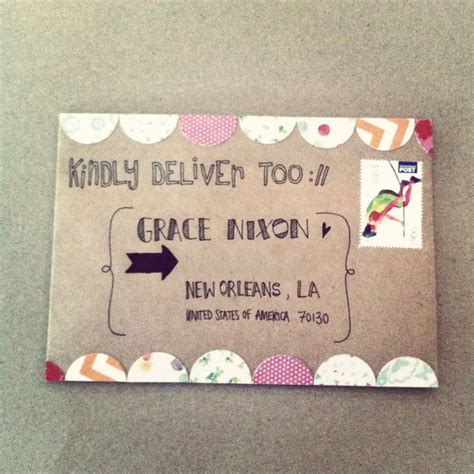 KINDLY DELIVER TOO://
GRACE NIXON
NEW ORLEANS, LA
UNITED STATES OF AMERICA 70130
POST